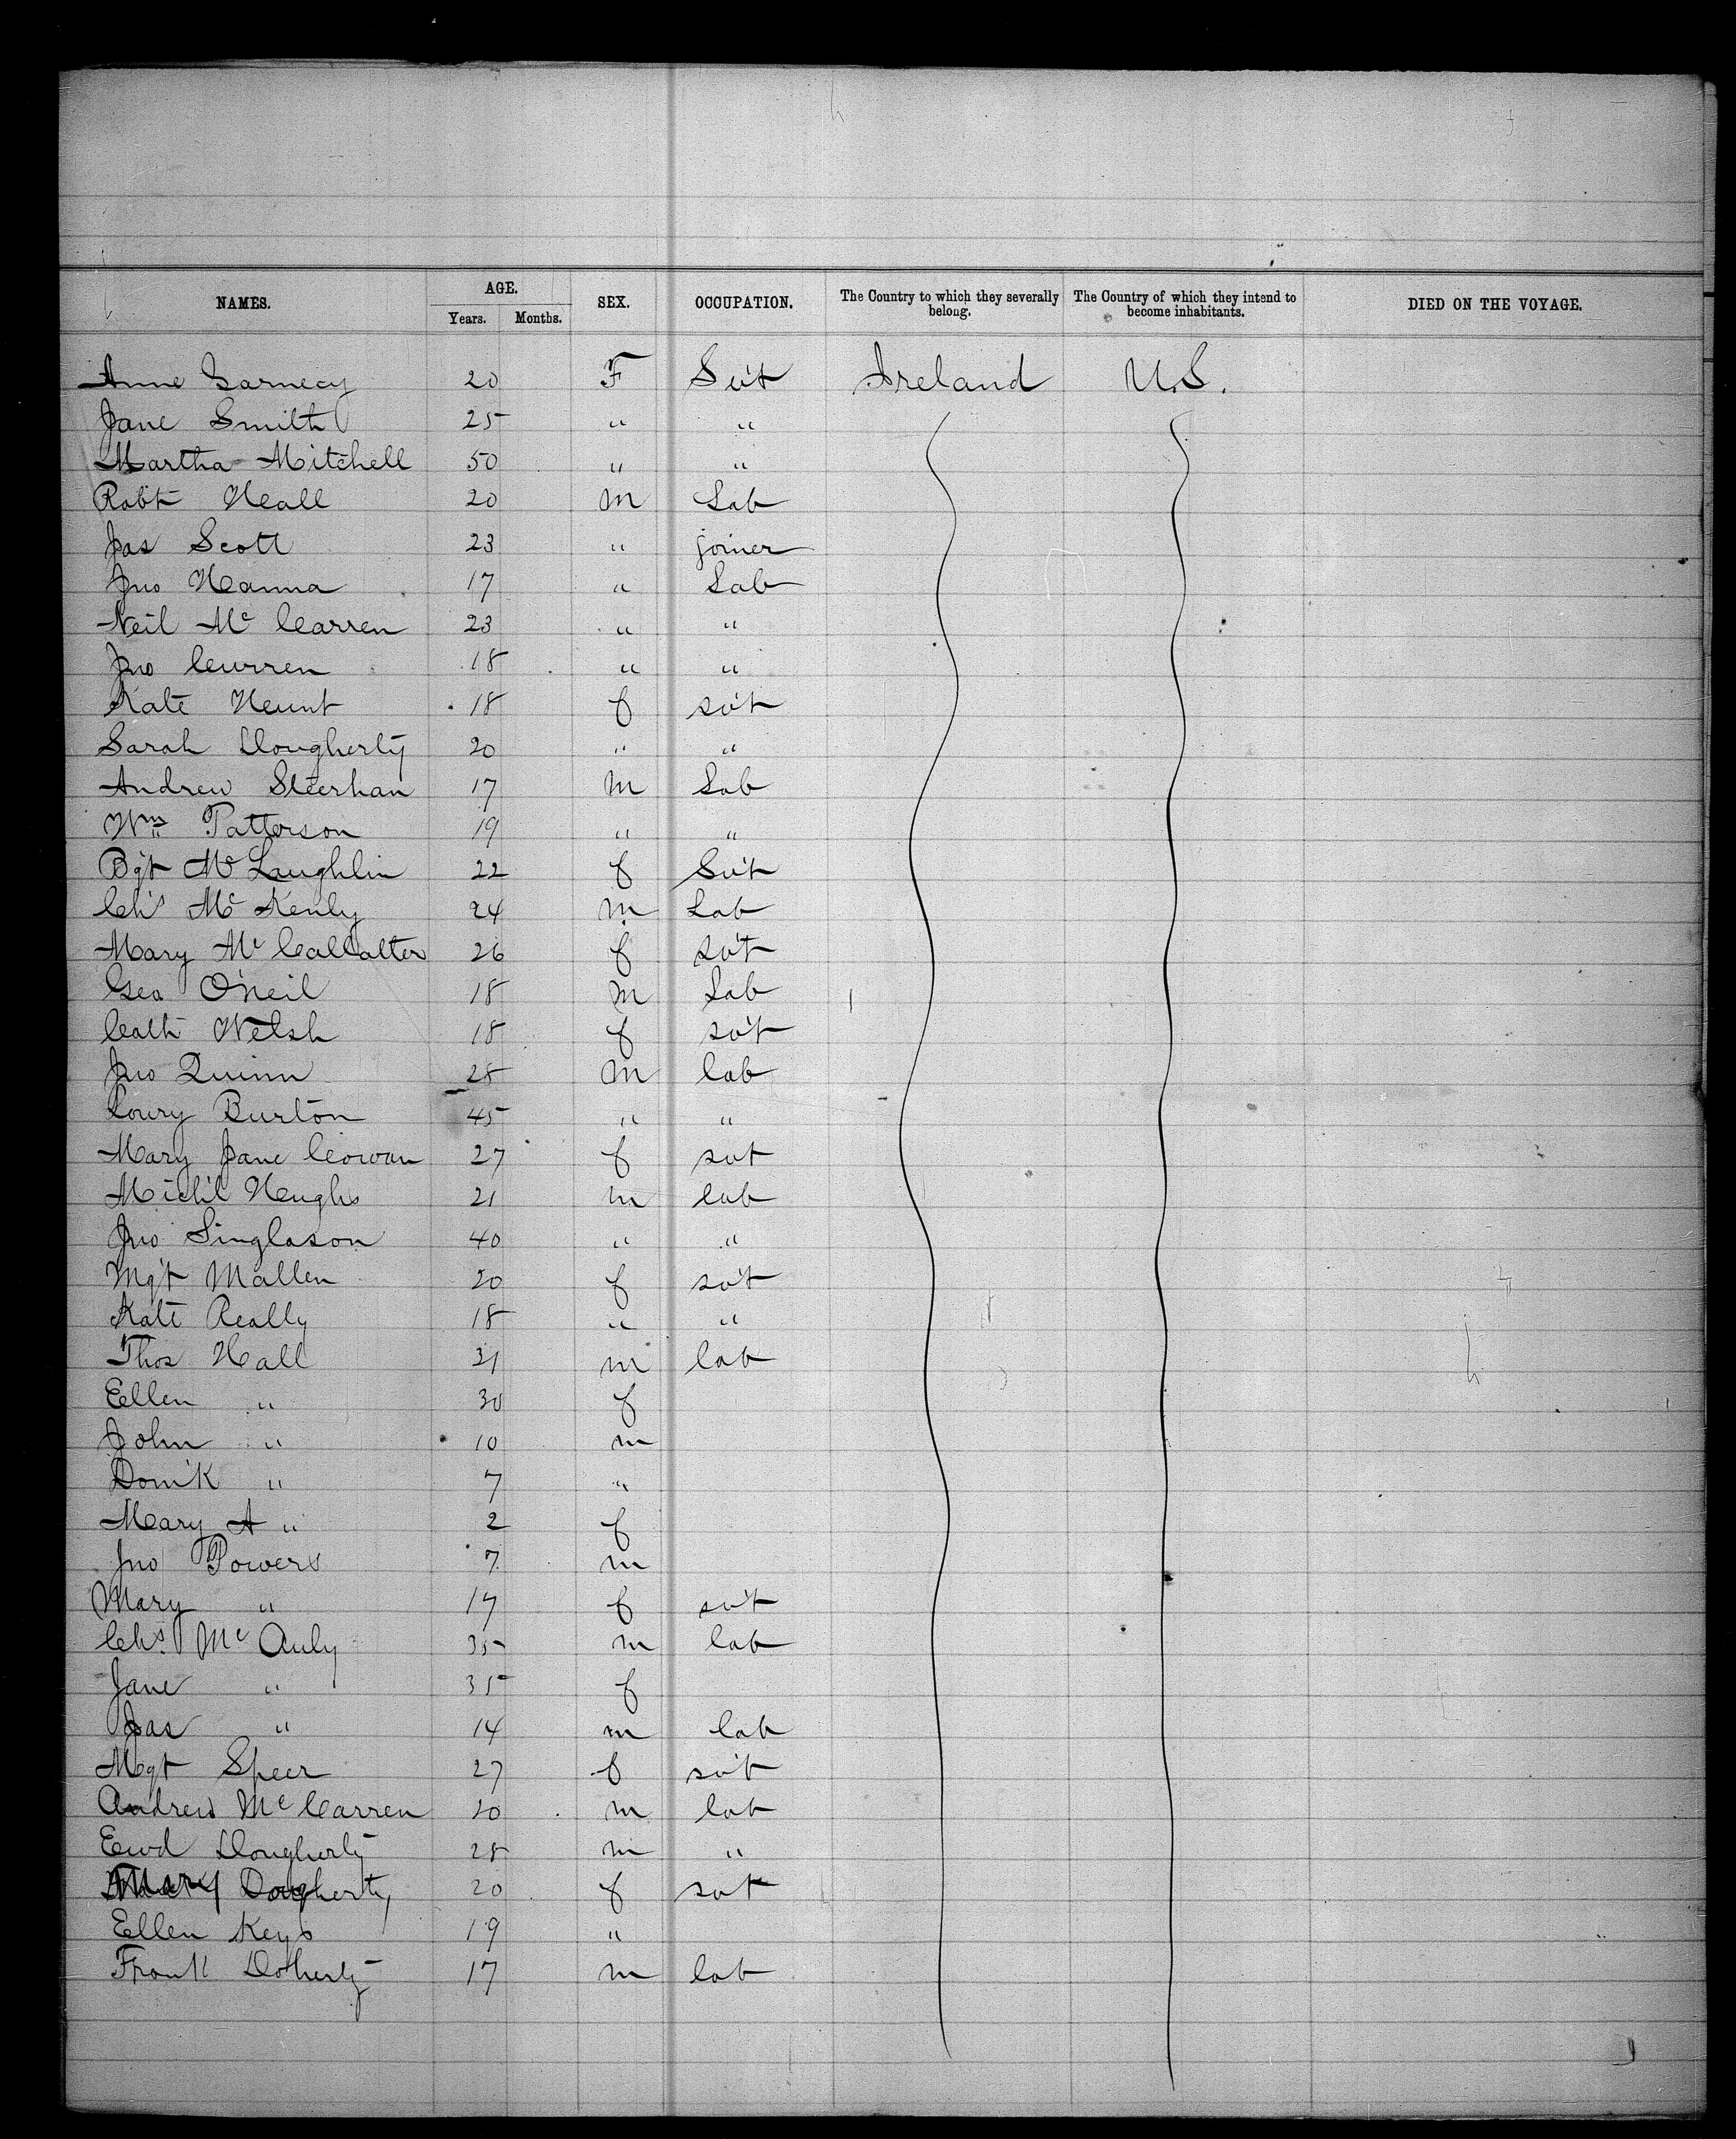 NAMES. AGE. SEX. OCCUPATION. The Country to which they severally belong. The Country of which they intend to become inhabitants. DIED ON THE VOYAGE.
Years. Months.
Anne 20 F Sv't Ireland U.S.
Jane Smith 25 " "
Martha Mitchell 50 " "
Robt Hall 20 m Lab
Jas Scott 23 " joiner
Jno Hanna 17 " Lab
Neil Mc Carren 23 " "
Jno Curren 18 " "
Kate Hunt 18 f sv't
Sarah Dougherty 20 " "
Andrew Steerhan 17 m Lab
Wm Patterson 19 " "
Bgt Mc Laughlin 22 f Sv't
Chs Mc Kenly 24 m Lab
Mary Mc 26 f sv't
Geo O'Neil 18 m Lab
Cath Welsh 18 f sv't
Jno Quinn 25 m lab
Lowry Burton 45 " "
Mary Jane Cowan 27 f svt
Mich'l Hughs 21 m lab
Jno Singlason 40 " "
Mgt Mallen 20 f sv't
Kate Really 18 " "
Thos Hall 31 m lab
Ellen " 30 f
John " 10 m
Dom'k " 7 "
Mary A " 2 f
Jno Powers 7 m
Mary " 17 f sv't
Chs Mc Auly 35 m lab
Jane " 35 f
Jas " 14 m lab
Mgt Speer 27 f sv't
Andrew Mc Carren 20 m lab
Ewd Dougherty 28 m "
Mary Dougherty 20 f svt
Ellen Keys 19 "
Frank Doherty 17 m lab